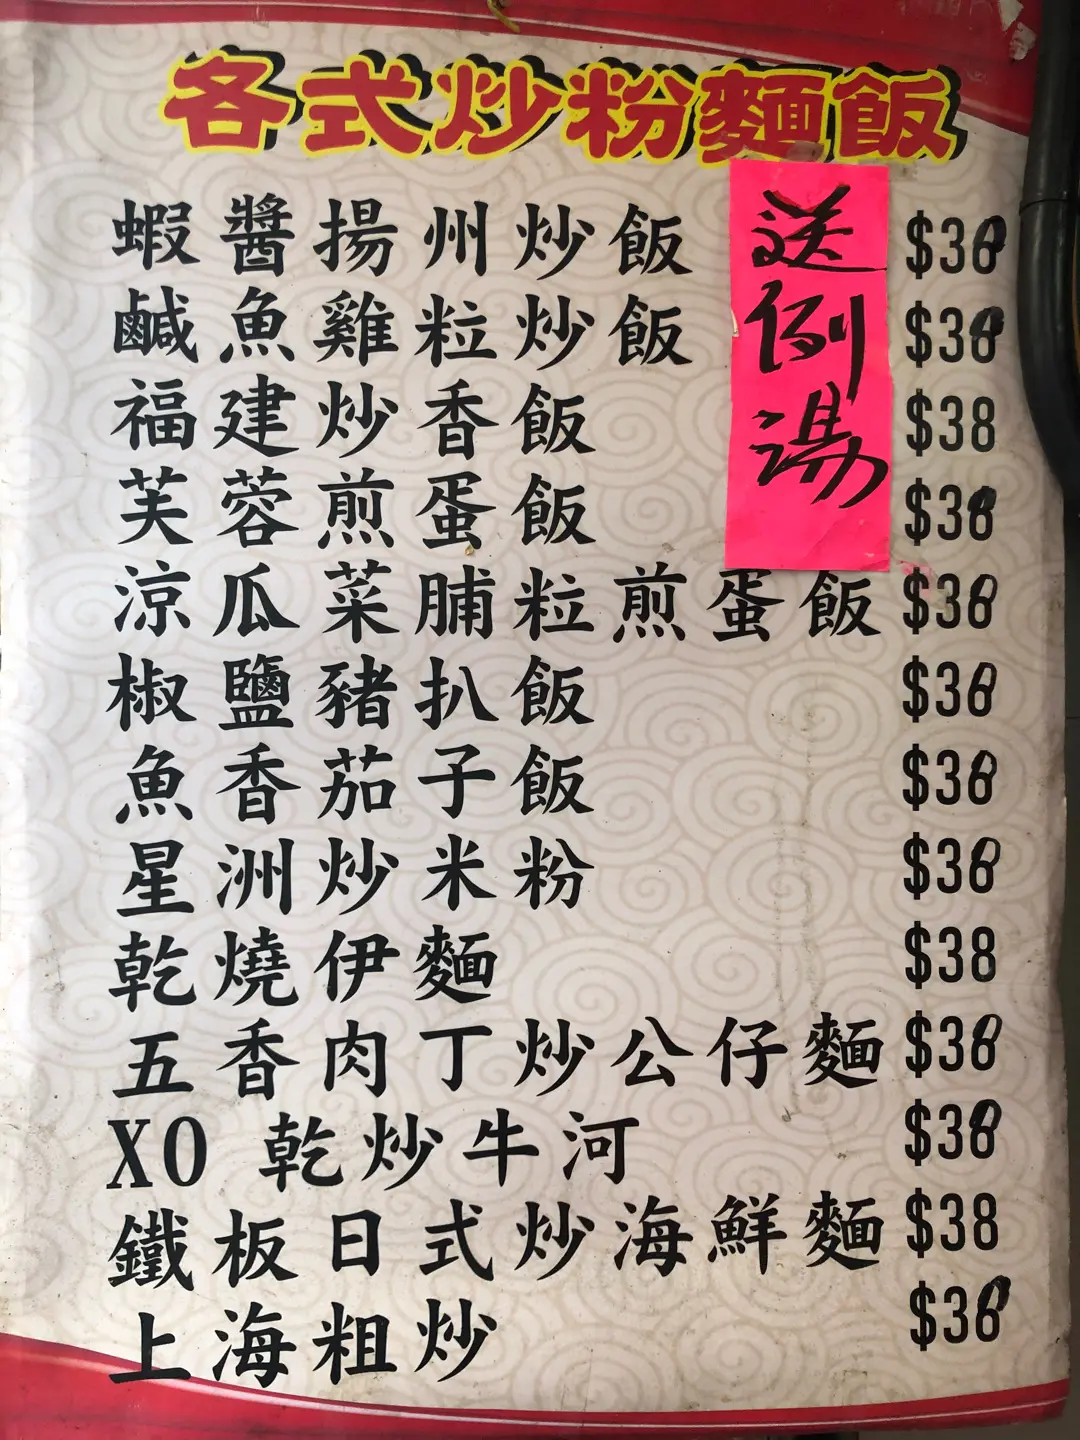 各式炒粉麵飯
送例湯
蝦醬揚州炒飯 $38
鹹魚雞粒炒飯 $38
福建炒香飯 $38
芙蓉煎蛋飯 $38
涼瓜菜脯粒煎蛋飯 $38
椒鹽豬扒飯 $38
魚香茄子飯 $38
星洲炒米粉 $38
乾燒伊麵 $38
五香肉丁炒公仔麵 $38
XO 乾炒牛河 $38
鐵板日式炒海鮮麵 $38
上海粗炒 $38